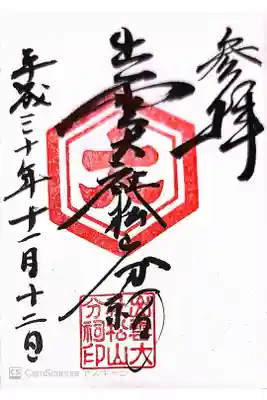 参拝
出雲大社松山分祠
平成三十年十一月十二日
大
出雲大
社松山
分祠印
CS CamScanner でスキャン